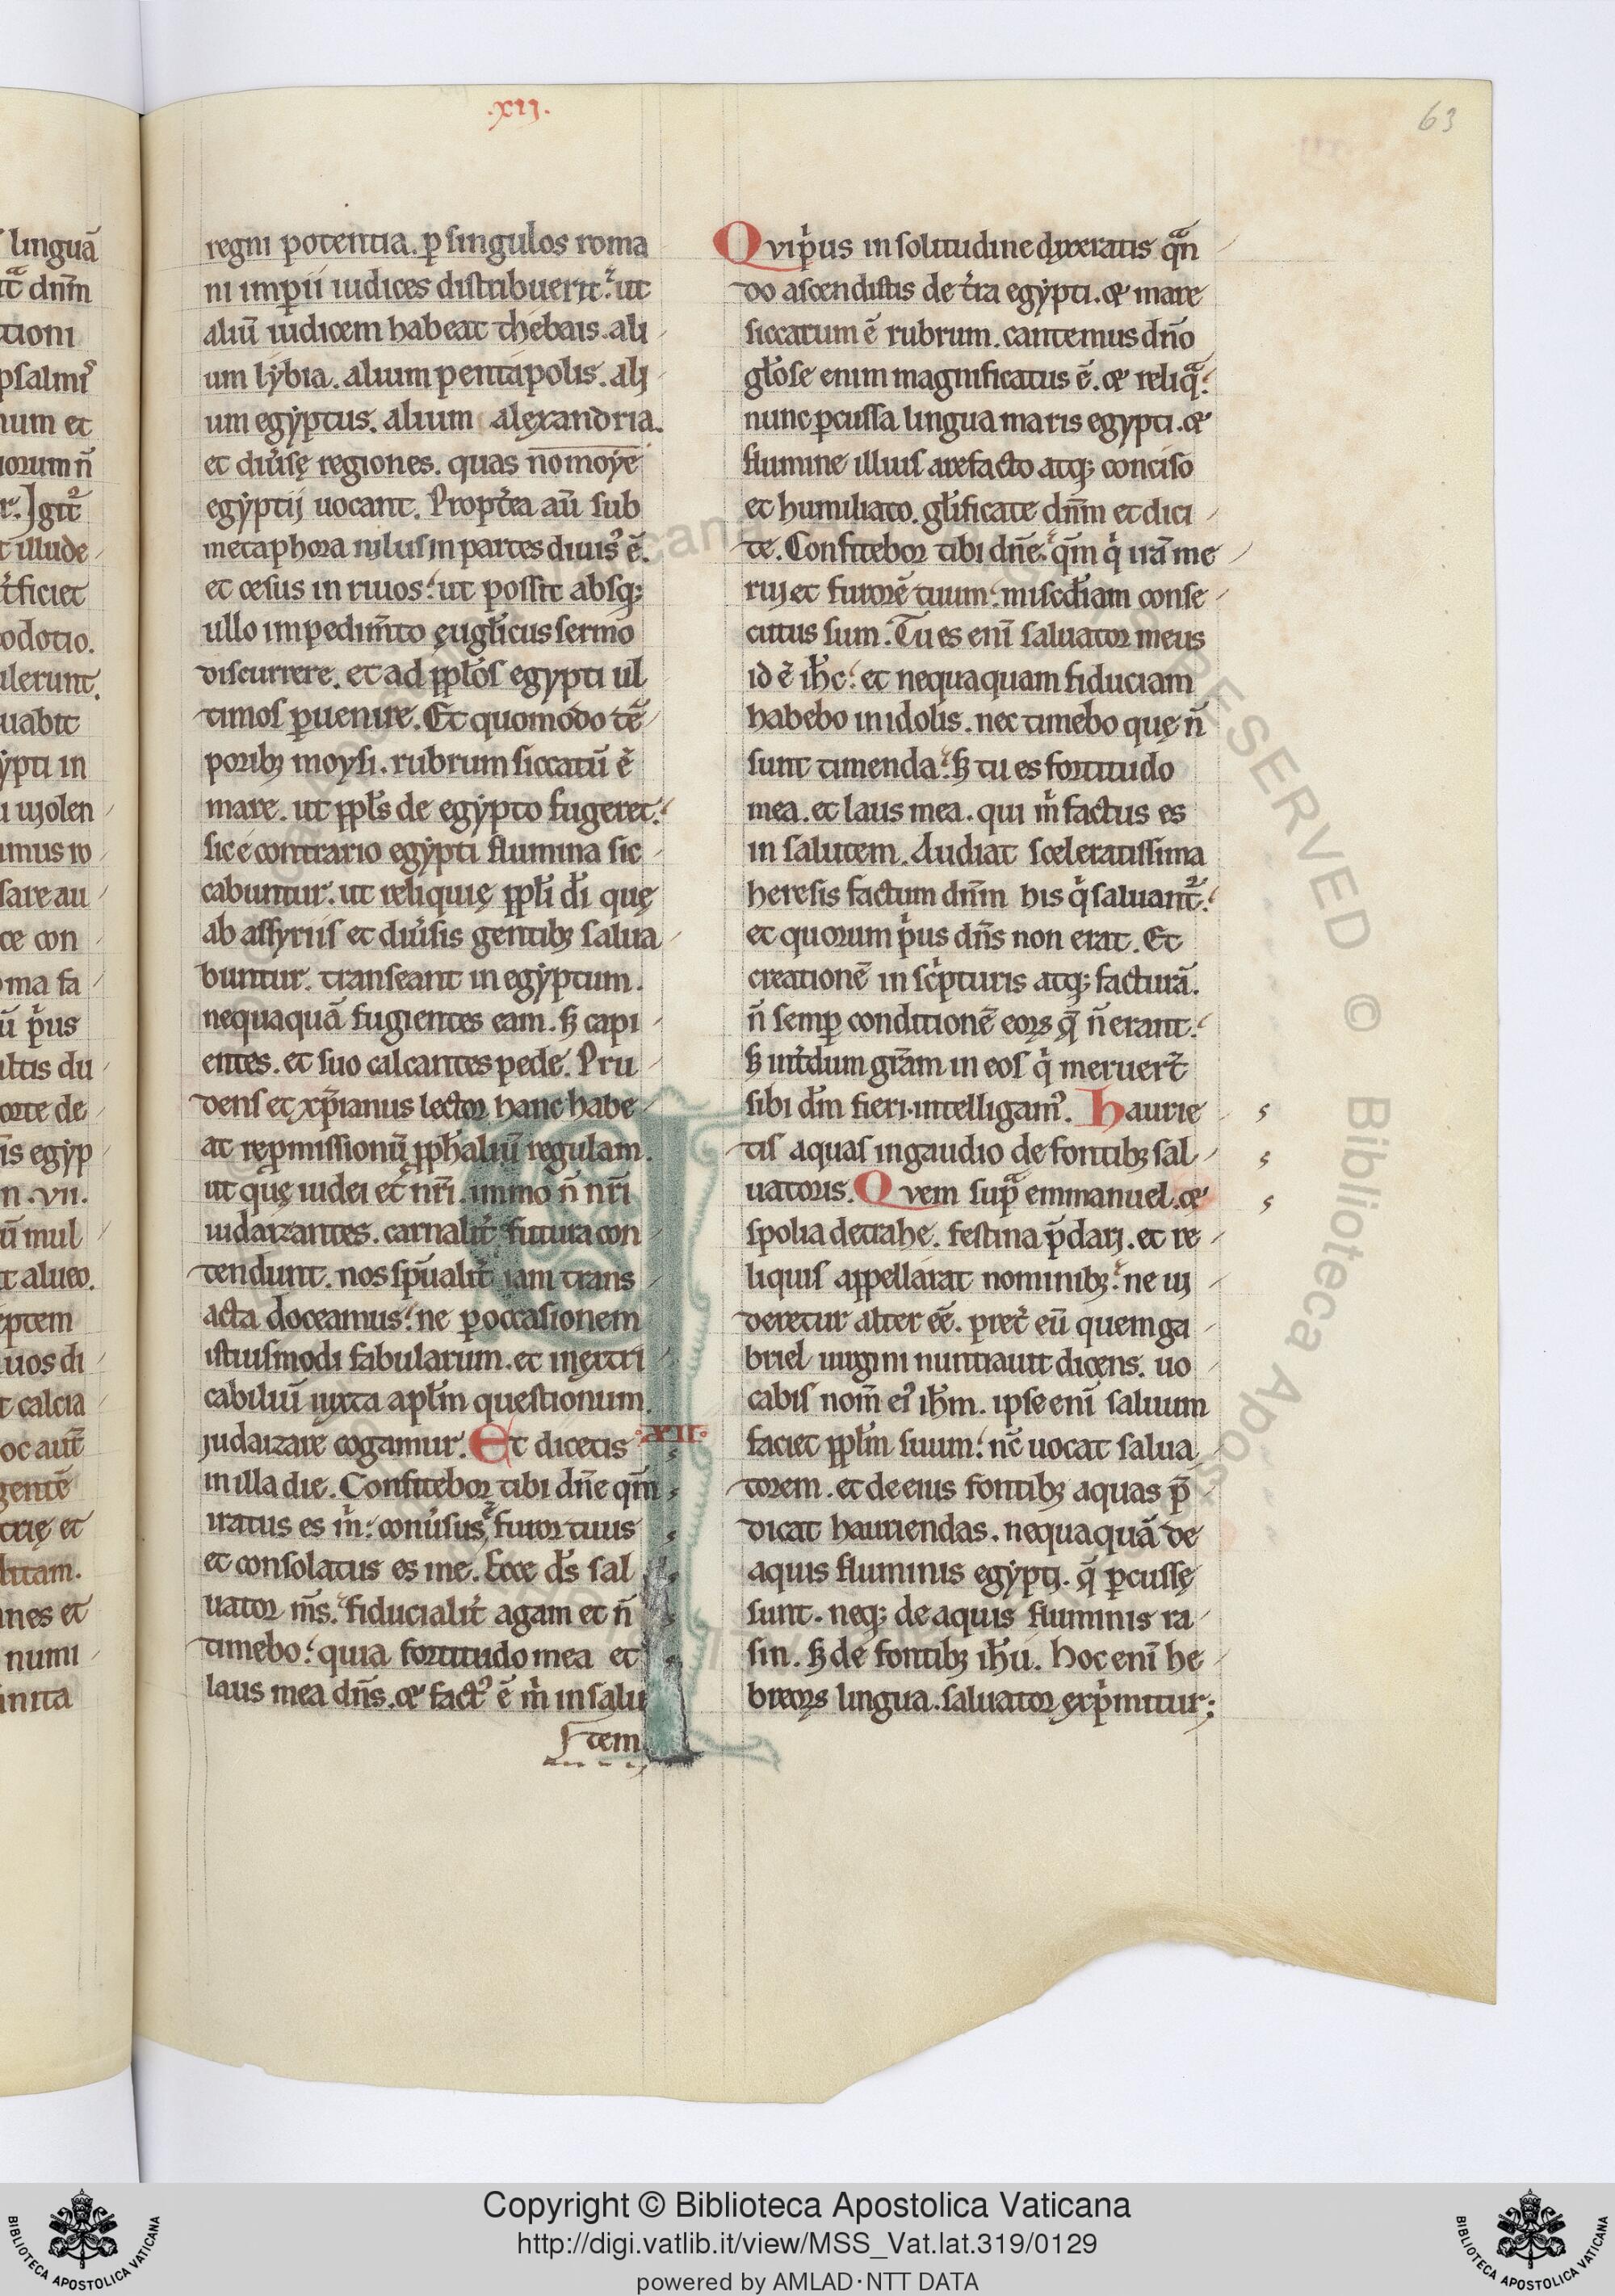 .xij.
63
regni potentia. ꝑ singulos roma
ni impii iudices distribuert̃. ut
aliũ iudicem habeat thebais. ali
um lybia. alium pentapolis. alj
um egyptus. alium alexandria.
et diu̾sę regiones. quas nomoye
egyptij uocant. Propt̾ea aũ sub
metaphora nilus in partes diuis᾽ ẽ.
et cesus in riuos. ut possit absq;
ullo impedim̃to ęuglicus sermo
discurrere. et ad pplos egypti ul
timos ꝑuenire. Et quomodo tẽ
porib; moysi. rubrum siccatũ ẽ
mare. ut ppls de egypto fugeret.
sic e contrario egypti flumina sic
cabuntur. ut reliquię ppli di quę
ab assyriis et diu̾sis gentib; salua
buntur. transeant in egyptum.
nequaquã fugientes eam. s; capi
entes. et suo calcantes pede. Pru
dens et xp̃ianus lector hanc habe
at repmissionũ pphaliũ regulam.
ut quę iudei et nr̃i. immo ñ nr̃i
iudaizantes. carnalit̾ futura con
tendunt. nos spũalit̾ iam trans
acta doceamus. ne ꝑ occasionem
istiusmodi fabularum. et inextri
cabiliũ iuxta aplm questionum
judaizare cogamur. Et dicetis .XII.
in illa die. Confitebor tibi dñe qm̃
iratus es m̾. conu̾sus ẽ furor tuus
et consolatus es me. Ecce ds sal
uator m̃s. fiducialit̾ agam et ñ
timebo. quia fortitudo mea et
laus mea dñs. & fact᾽ ẽ m̾ in salu
tem
Qvi p̾us in solitudine dixeratis qãn
do ascendistis de t̾ra egypti. & mare
siccatum ẽ rubrum. cantemus dño
glose enim magnificatus ẽ. & reliq̃.
nunc ꝑcussa lingua maris egypti. &
flumine illius arefacto atq; conciso
et humiliato. glificate dñm et dici
te. Confitebor tibi dñe. qm̃ q̾ irã me
ruj et furorẽ tuum. misc̃diam conse
cutus sum. Tu es enĩ saluator meus
id ẽ ihc. et nequaquam fiduciam
habebo in idolis. nec timebo quę ñ
sunt timenda. s; tu es fortitudo
mea. et laus mea. qui m̾ factus es
in salutem. Audiat sceleratissima
heresis factum dñm his q̾ saluant᾽.
et quorum p̾us dñs non erat. Et
creationẽ in sc̾pturis atq; facturã.
ñ semꝑ conditionẽ eoꝝ q̃ ñ erant.
s; int̾dum grãm in eos q̾ meruert̃
sibi dm̃ fieri. intelligam᾽. Haurie
tis aquas in gaudio de fontib; sal
uatoris. Qvem sup̃ emmanuel. &
spolia detrahe. festina p̃darj. et re
liquis appellarat nominib;. ne ui
deretur alter eẽ. pret̾ eũ quem ga
briel uirgini nuntiauit dicens. uo
cabis nom̃ ei᾽ ihm. ipse enĩ saluum
faciet pplm suum. nc̃ uocat salua
torem. et de eius fontib; aquas p̃
dicat hauriendas. nequaquã de
aquis fluminis egypti. q̃ ꝑcussę
sunt. neq; de aquis fluminis ra
sin. s; de fontib; ihu. Hoc enĩ he
breoꝝ lingua. saluator exp̾mitur;
Copyright © Biblioteca Apostolica Vaticana
http://digi.vatlib.it/view/MSS_Vat.lat.319/0129
powered by AMLAD·NTT DATA
BIBLIOTECA APOSTOLICA VATICANA
BIBLIOTECA APOSTOLICA VATICANA